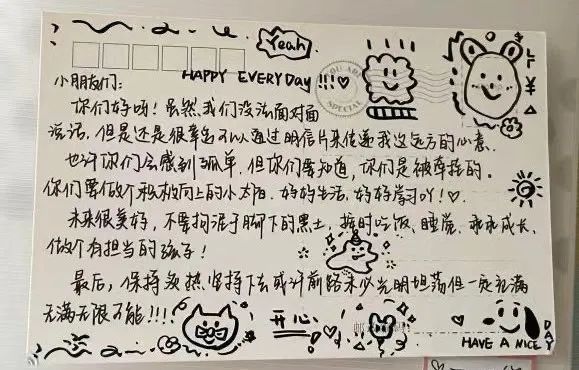 Yeah
HAPPY EVERYDAY!!!
YOU ARE
SPECIAL
小朋友们:
你们好呀!虽然我们没法面对面
说话,但是还是很幸运可以通过明信片来传递我这远方的心意.
也许你们会感到孤单,但你们要知道,你们是被牵挂的.
你们要做个积极向上的小太阳,好好生活,好好学习吖!
未来很美好,不要拘泥于脚下的黑土,按时吃饭、睡觉、乖乖成长、
做个有担当的孩子!
最后,保持炙热,坚持下去或许前路未必光明坦荡但一定充满
无满无限可能!!!!
开心
邮
HAVE A NICE